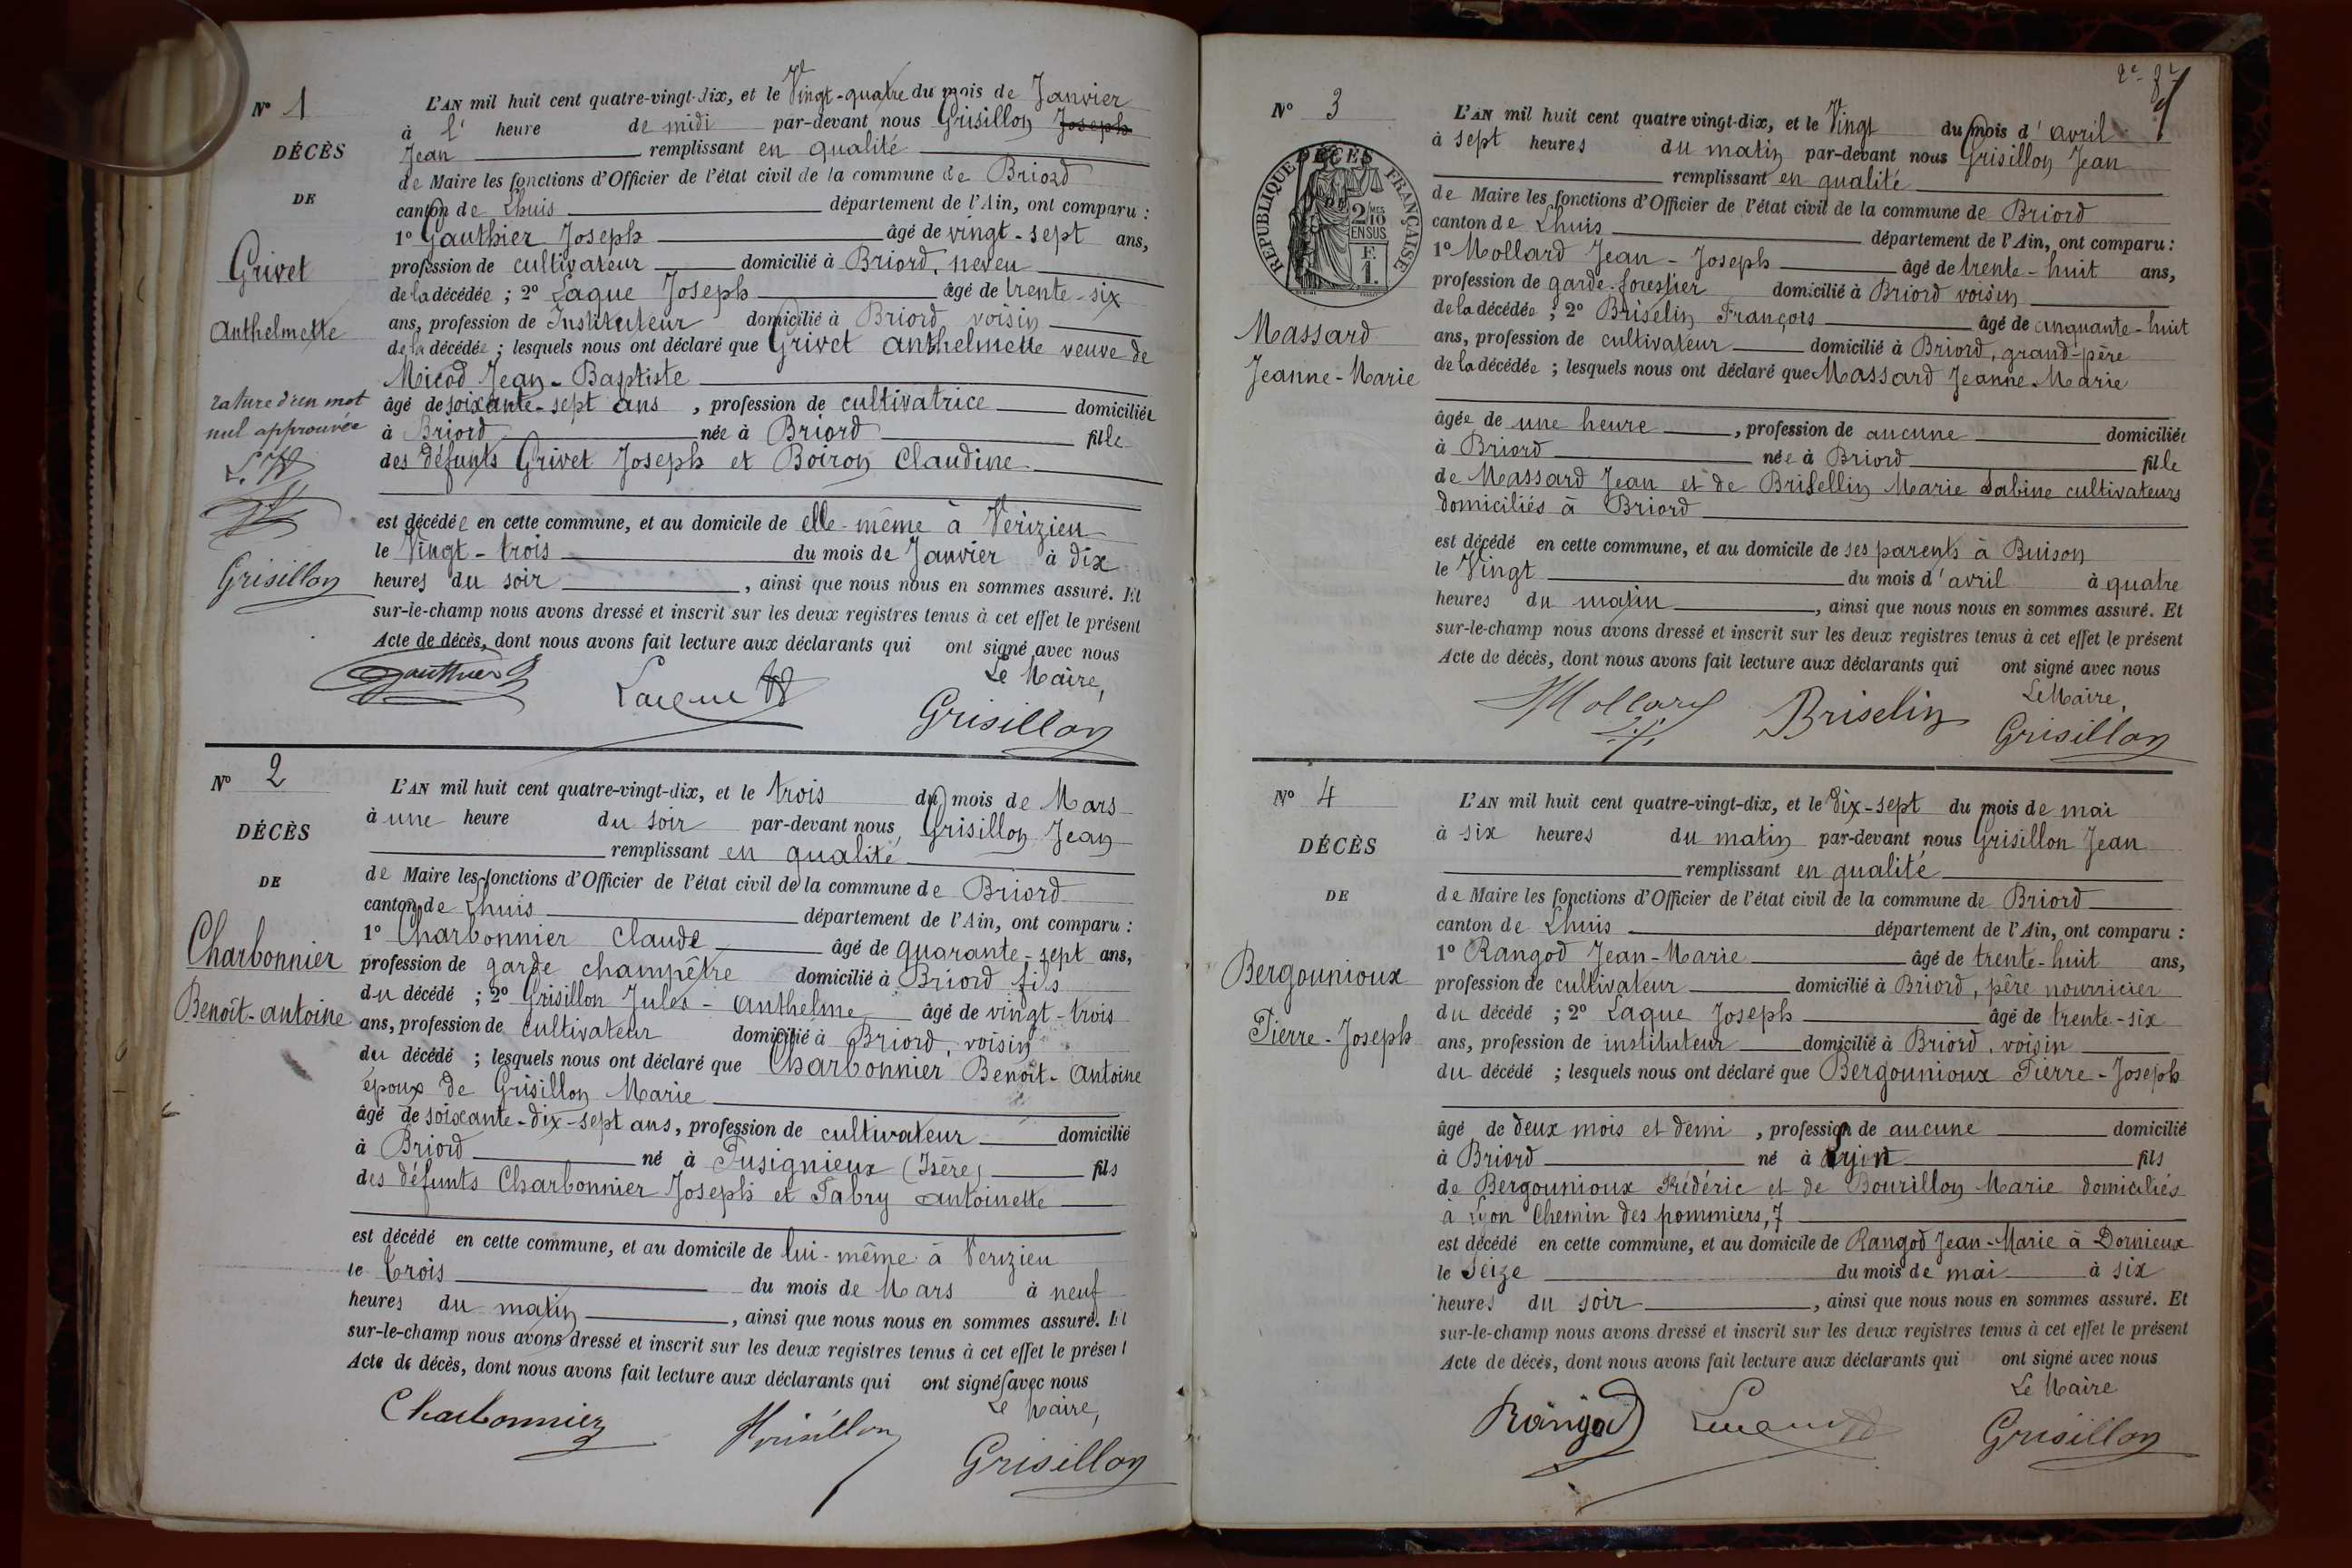 N° 1
DÉCÈS
DE
Grivet
Anthelmette
rature d'un mot
nul approuvée
Grisillon
L'AN mil huit cent quatre-vingt-dix, et le Vingt-quatre du mois de Janvier
à l' heure de midi par-devant nous Grisillon Joseph
Jean remplissant en qualité
de Maire les fonctions d'Officier de l'état civil de la commune de Briord
canton de Lhuis département de l'Ain, ont comparu :
1° Gauthier Joseph âgé de vingt-sept ans,
profession de cultivateur domicilié à Briord, neveu
de la décédée ; 2° Laque Joseph âgé de trente-six
ans, profession de Instituteur domicilié à Briord voisin
de la décédée ; lesquels nous ont déclaré que Grivet Anthelmette veuve de
Micod Jean-Baptiste
âgé de soixante-sept ans , profession de cultivatrice domiciliée
à Briord née à Briord fille
des défunts Grivet Joseph et Boiron Claudine
est décédée en cette commune, et au domicile de elle-même à Vérizieu
le Vingt-trois du mois de Janvier à dix
heures du soir , ainsi que nous nous en sommes assuré. Et
sur-le-champ nous avons dressé et inscrit sur les deux registres tenus à cet effet le présent
Acte de décès, dont nous avons fait lecture aux déclarants qui ont signé avec nous
Le Maire,
Gauthier Laque Grisillon
N° 2
DÉCÈS
DE
Charbonnier
Benoît-Antoine
L'AN mil huit cent quatre-vingt-dix, et le trois du mois de Mars
à une heure du soir par-devant nous, Grisillon Jean
remplissant en qualité
de Maire les fonctions d'Officier de l'état civil de la commune de Briord
canton de Lhuis département de l'Ain, ont comparu :
1° Charbonnier Claude âgé de quarante-sept ans,
profession de garde champêtre domicilié à Briord fils
du décédé ; 2° Grisillon Jules-Anthelme âgé de vingt-trois
ans, profession de cultivateur domicilié à Briord, voisin
du décédé ; lesquels nous ont déclaré que Charbonnier Benoît-Antoine
époux de Grisillon Marie
âgé de soixante-dix-sept ans, profession de cultivateur domicilié
à Briord né à Pusignieux (Isère) fils
des défunts Charbonnier Joseph et Fabry Antoinette
est décédé en cette commune, et au domicile de lui-même à Verizieu
le trois du mois de Mars à neuf
heures du matin , ainsi que nous nous en sommes assuré. Et
sur-le-champ nous avons dressé et inscrit sur les deux registres tenus à cet effet le présent
Acte de décès, dont nous avons fait lecture aux déclarants qui ont signé avec nous
Le Maire,
Charbonnier Grisillon Grisillon
2e ft
N° 3
RÉPUBLIQUE FRANÇAISE
DÉCÈS
DE
2/10 MES
EN SUS
F.
1.
Massard
Jeanne-Marie
L'AN mil huit cent quatre vingt-dix, et le Vingt du mois d'avril
à sept heures du matin par-devant nous Grisillon Jean
remplissant en qualité
de Maire les fonctions d'Officier de l'état civil de la commune de Briord
canton de Lhuis département de l'Ain, ont comparu :
1° Mollard Jean-Joseph âgé de trente-huit ans,
profession de garde-forestier domicilié à Briord voisin
de la décédée ; 2° Briselin François âgé de cinquante-huit
ans, profession de cultivateur domicilié à Briord, grand-père
de la décédée ; lesquels nous ont déclaré que Massard Jeanne-Marie
âgée de une heure , profession de aucune domiciliée
à Briord née à Briord fille
de Massard Jean et de Brisellin Marie Sabine cultivateurs
domiciliés à Briord
est décédé en cette commune, et au domicile de ses parents à Buison
le Vingt du mois d'avril à quatre
heures du matin , ainsi que nous nous en sommes assuré. Et
sur-le-champ nous avons dressé et inscrit sur les deux registres tenus à cet effet le présent
Acte de décès, dont nous avons fait lecture aux déclarants qui ont signé avec nous
Le Maire,
Mollard Briselin Grisillon
N° 4
DÉCÈS
DE
Bergounioux
Pierre-Joseph
L'AN mil huit cent quatre-vingt-dix, et le dix-sept du mois de mai
à six heures du matin par-devant nous Grisillon Jean
remplissant en qualité
de Maire les fonctions d'Officier de l'état civil de la commune de Briord
canton de Lhuis département de l'Ain, ont comparu :
1° Rangod Jean-Marie âgé de trente-huit ans,
profession de cultivateur domicilié à Briord, père nourricier
du décédé ; 2° Laque Joseph âgé de trente-six
ans, profession de instituteur domicilié à Briord, voisin
du décédé ; lesquels nous ont déclaré que Bergounioux Pierre-Joseph
âgé de deux mois et demi , profession de aucune domicilié
à Briord né à fils
de Bergounioux Frédéric et de Bourillon Marie domiciliés
à Lyon Chemin des pommiers, 7
est décédé en cette commune, et au domicile de Rangod Jean-Marie à Dornieux
le Seize du mois de mai à six
heures du soir , ainsi que nous nous en sommes assuré. Et
sur-le-champ nous avons dressé et inscrit sur les deux registres tenus à cet effet le présent
Acte de décès, dont nous avons fait lecture aux déclarants qui ont signé avec nous
Le Maire
Rangod Laque Grisillon